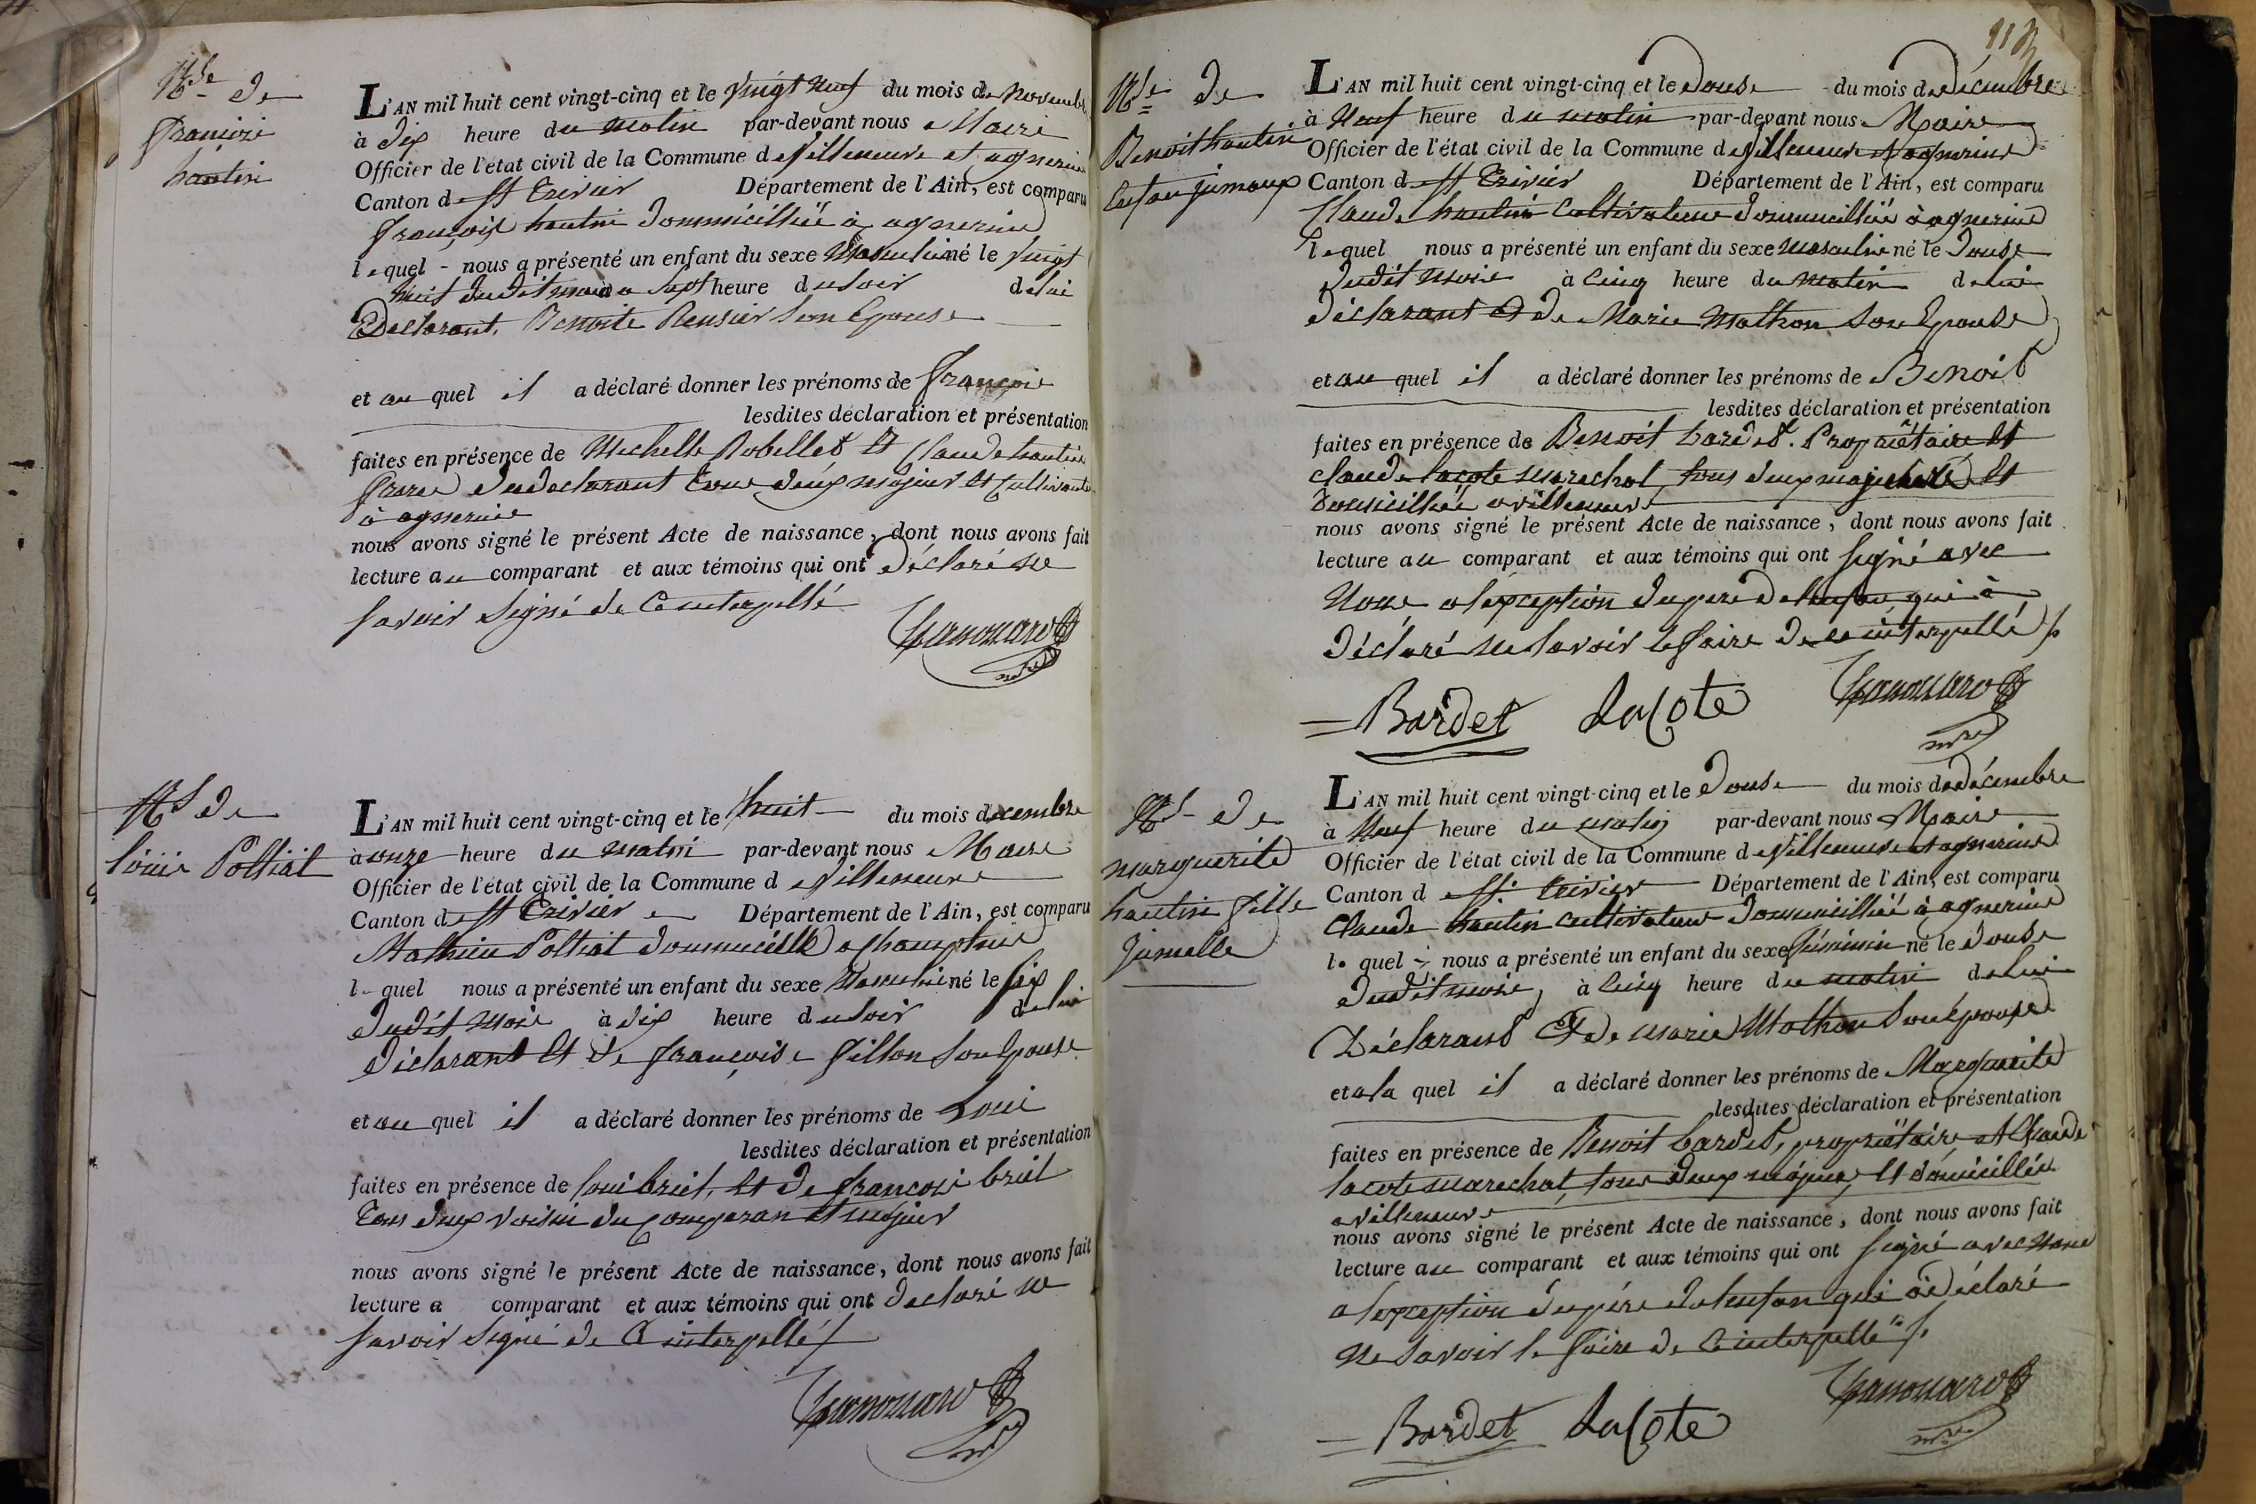 Nce de
françois
hautin
L'AN mil huit cent vingt-cinq et le vingt neuf du mois de Novembre
à dix heure du matin par-devant nous Maire
Officier de l'état civil de la Commune de Villeneuve et agnerins
Canton de St Trivier Département de l'Ain, est comparu
françois hautin dommicillié à agnerins
lequel - nous a présenté un enfant du sexe Masculin né le vingt
huit dudit mois a sept heure du soir de lui
Déclarant, Benoite son Epouse
et au quel il a déclaré donner les prénoms de françois
lesdites déclaration et présentation
faites en présence de Michelle Robellet et Claude hautin
frere du declarant tous deux majeur et Cultivants
à agnerins
nous avons signé le présent Acte de naissance, dont nous avons fait
lecture au comparant et aux témoins qui ont déclaré ne
savoir signé de ce interpellé
mre
Ns de
Loüis Poltiat
L'AN mil huit cent vingt-cinq et le huit du mois decembre
à onze heure du matin par-devant nous Maire
Officier de l'état civil de la Commune de Villeneuve
Canton de St Trivier Département de l'Ain, est comparu
Mathieu Poltiat dommicillé a
lequel nous a présenté un enfant du sexe Masculin né le six
dudit mois à dix heure du soir de lui
Déclarant et de françoise fillon son Epouse
et au quel il a déclaré donner les prénoms de Loui
lesdites déclaration et présentation
faites en présence de loui bruit, et de françois bruit
tous deux voisin du comparan et majeur
nous avons signé le présent Acte de naissance, dont nous avons fait
lecture a comparant et aux témoins qui ont declaré ne
savoir signé de ce interpellé
mre
113
Nce de
Benoit hautin
enfan jumaux
L'AN mil huit cent vingt-cinq et le douse du mois de décembre
à Neuf heure du matin par-devant nous Maire
Officier de l'état civil de la Commune de Villeneuve et agnerins
Canton de St Trivier Département de l'Ain, est comparu
Claude hautin Cultivateur dommicillié à agnerins
lequel nous a présenté un enfant du sexe masculin né le douse
dudit mois à cinq heure du matin de lui
déclarant et de Marie Mathon son Epouse
et au quel il a déclaré donner les prénoms de Benoit
lesdites déclaration et présentation
faites en présence de Benoit bardet. Propriétaire et
claude lacote marechal tous deux majeurs et
domicilliés a villeneuve
nous avons signé le présent Acte de naissance, dont nous avons fait
lecture au comparant et aux témoins qui ont signé avec
Nous a lexception du pere de lenfan qui à
déclaré ne savoir le faire de ce interpellé
Bardet LaCote
mre
Ns de
marguerite
hautin fille
jumelle
L'AN mil huit cent vingt-cinq et le douse du mois de décembre
à Neuf heure du matin par-devant nous Maire
Officier de l'état civil de la Commune de Villeneuve et agnerins
Canton de St. Trivier Département de l'Ain, est comparu
Claude hautin cultivateur dommicillié à agnerins
lequel nous a présenté un enfant du sexe féminin né le douse
dudit mois, à cinq heure du matin de lui
Déclarant et de marie Mathon son épouse
et a la quel il a déclaré donner les prénoms de Marguerite
lesdites déclaration et présentation
faites en présence de Benoit bardet, propriétaire et Claude
lacote marechal, tous deux majeur, et domicilliés
a villeneuve
nous avons signé le présent Acte de naissance, dont nous avons fait
lecture au comparant et aux témoins qui ont signé avec nous
a lexception du pére de lenfan qui à déclaré
ne savoir le faire de ce interpellé
Bardet LaCote
mre